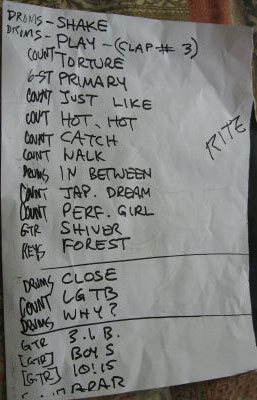 DRUMS - SHAKE
DRUMS - PLAY - (CLAP # 3)
COUNT TORTURE
6-ST PRIMARY
COUNT JUST LIKE
COUT HOT, HOT
COUNT CATCH
COUNT WALK
DRUMS IN BETWEEN
COUNT JAP. DREAM
COUNT PERF. GIRL
GTR SHIVER
KEYS FOREST
RITZ
DRUMS CLOSE
COUNT LGTB
DRUMS WHY?
GTR 3.I.B.
[GTR] BOYS
[GTR] 10!15
ARAB